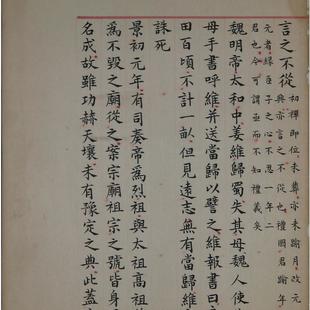 言之不從
初禪即位未葬亦未踰月改元
興亦言之不從也禮國君踰年
元者緣臣子之心不忍一年二
君也今可謂亟而不知禮義矣
魏明帝太和中姜維歸蜀失其母魏人使
母手書呼維并送當歸以譬之維報書曰
田百頃不計一畝但見遠志無有當歸
誅死
景初元年有司奏帝爲烈祖與太祖高祖
爲不毀之廟從之案宗廟祖宗之號皆身
名成故雖功赫天壤未有豫定之典此蓋